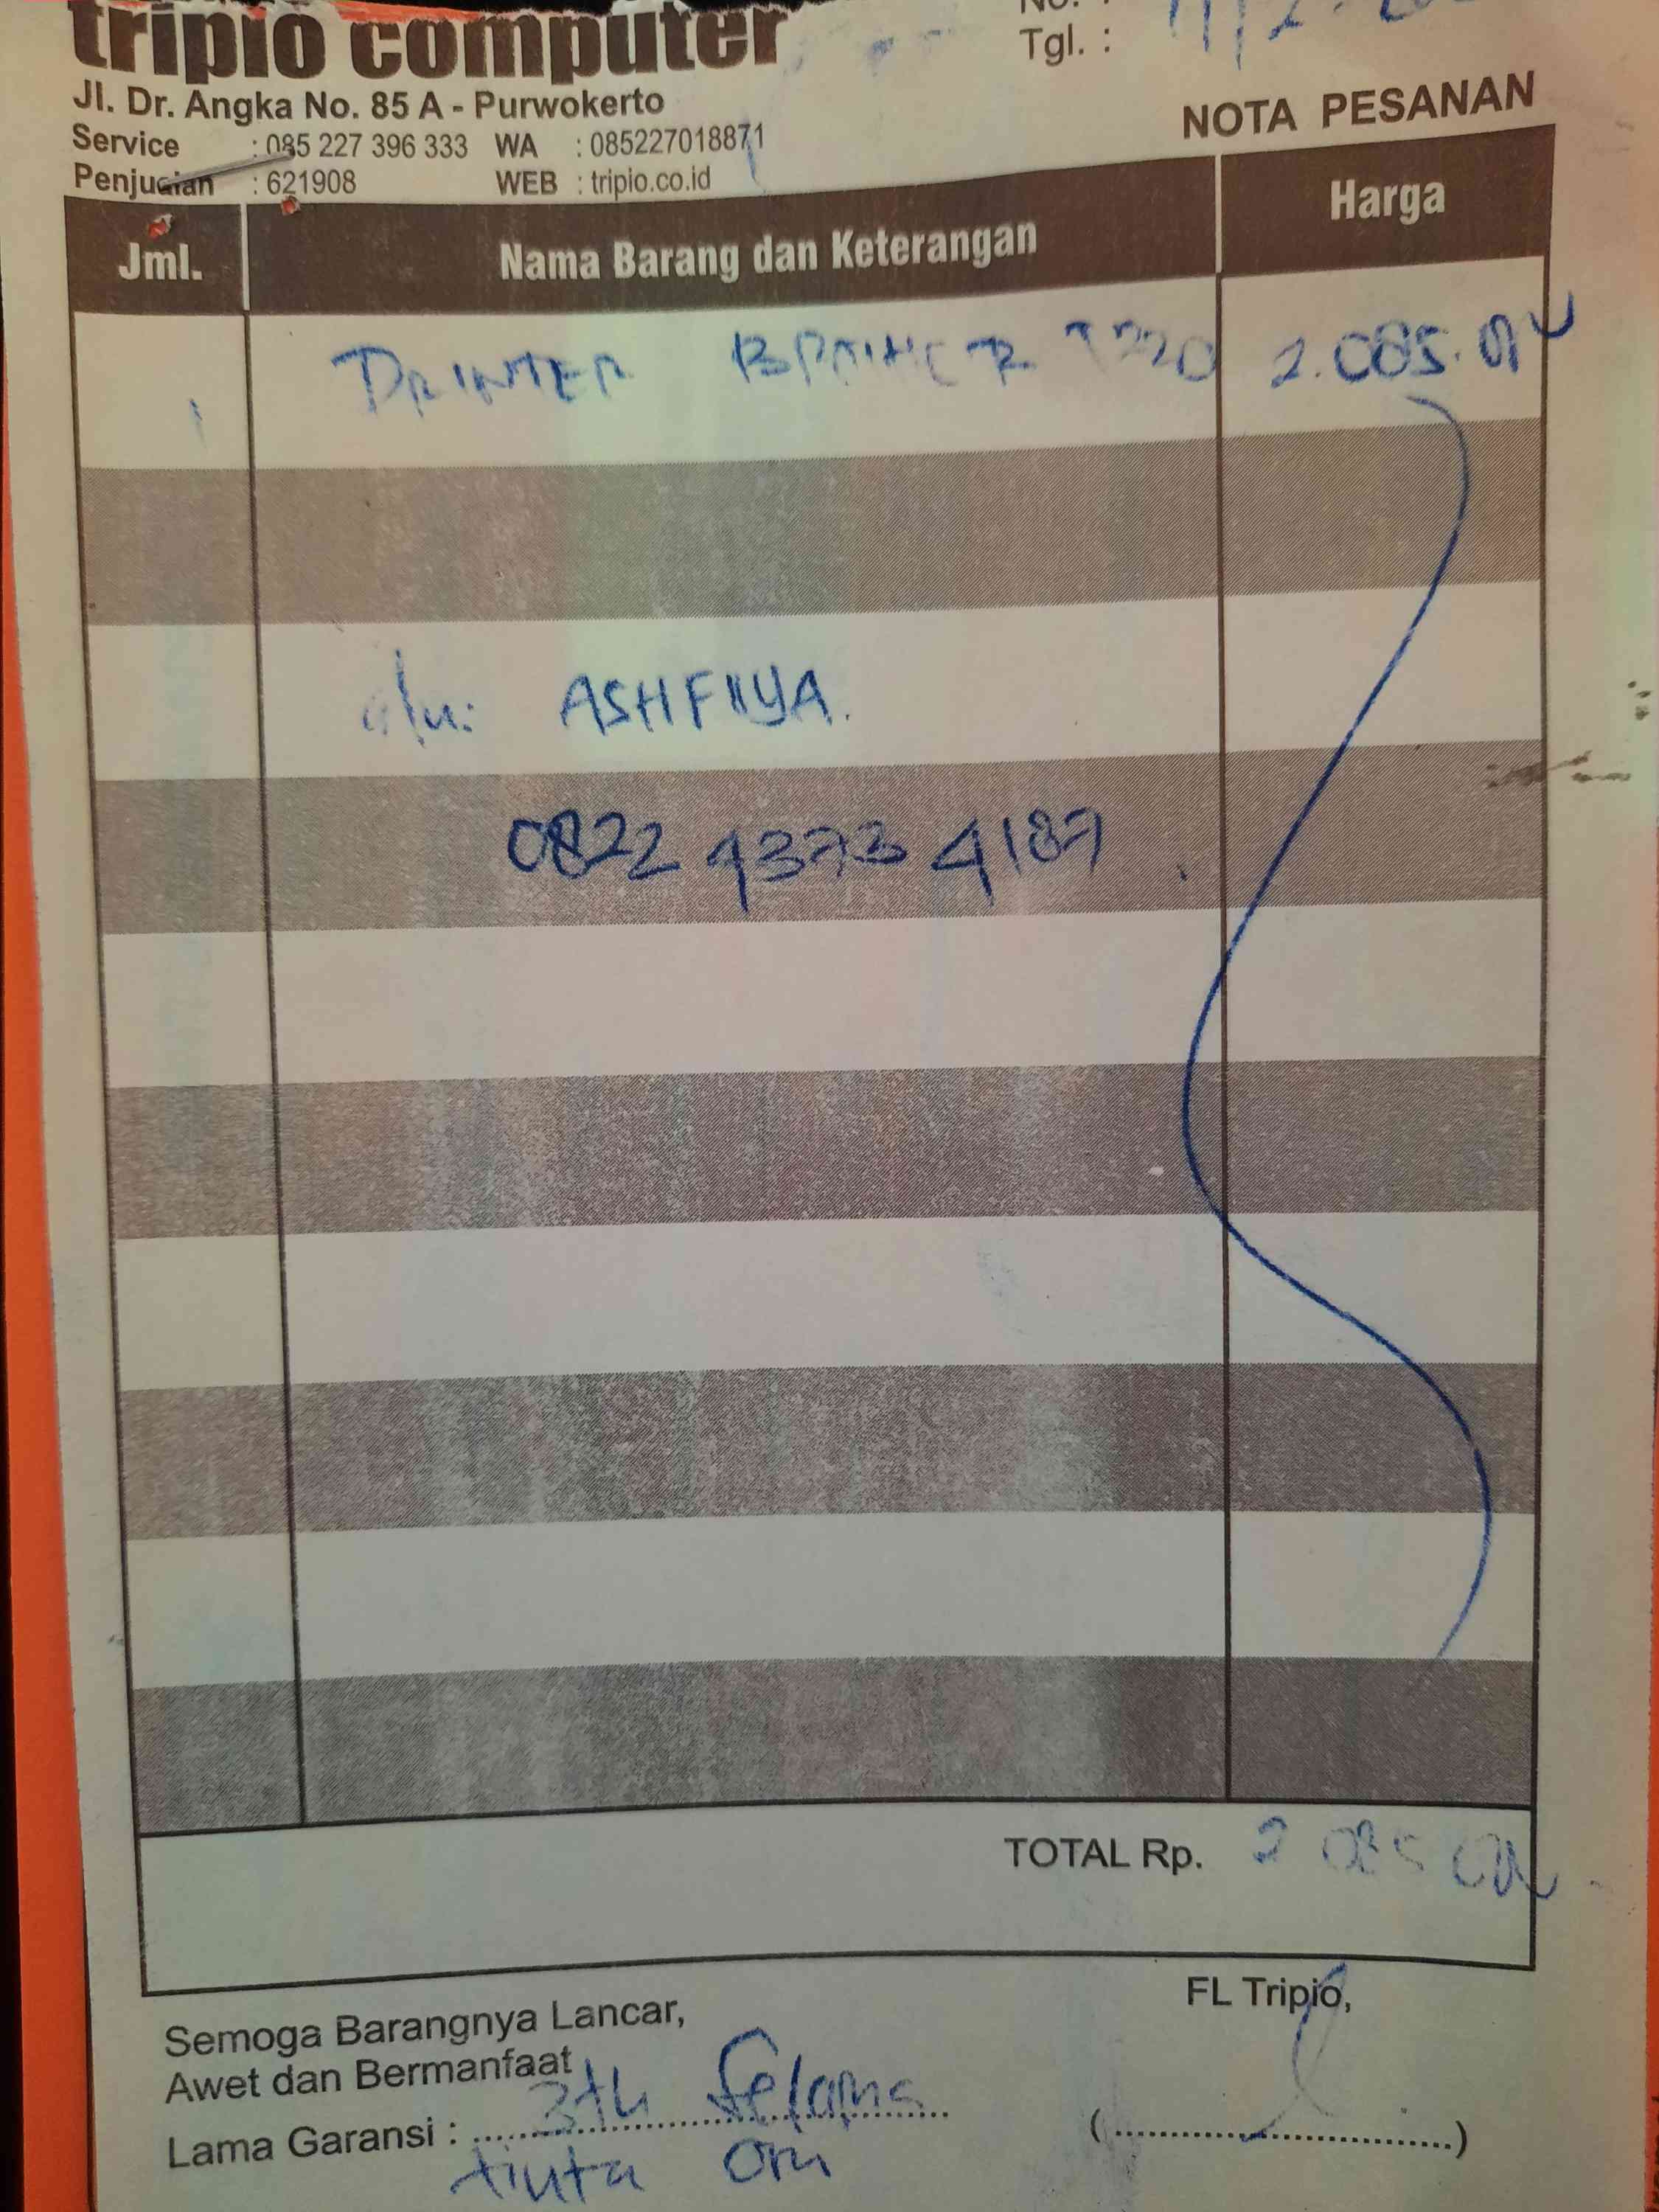 tripio computer
No. :
Tgl. :
Jl. Dr. Angka No. 85 A - Purwokerto
Service : 085 227 396 333 WA : 085227018871
Penjualan : 621908 WEB : tripio.co.id
NOTA PESANAN
Jml. Nama Barang dan Keterangan Harga
1 PRINTER BROTHER 2.085.000
a/n: ASHFIIYA.
0822 4373 4187
TOTAL Rp. 2 085 000
Semoga Barangnya Lancar,
Awet dan Bermanfaat
FL Tripio,
Lama Garansi : 3th selama
tinta ori
(..............................)